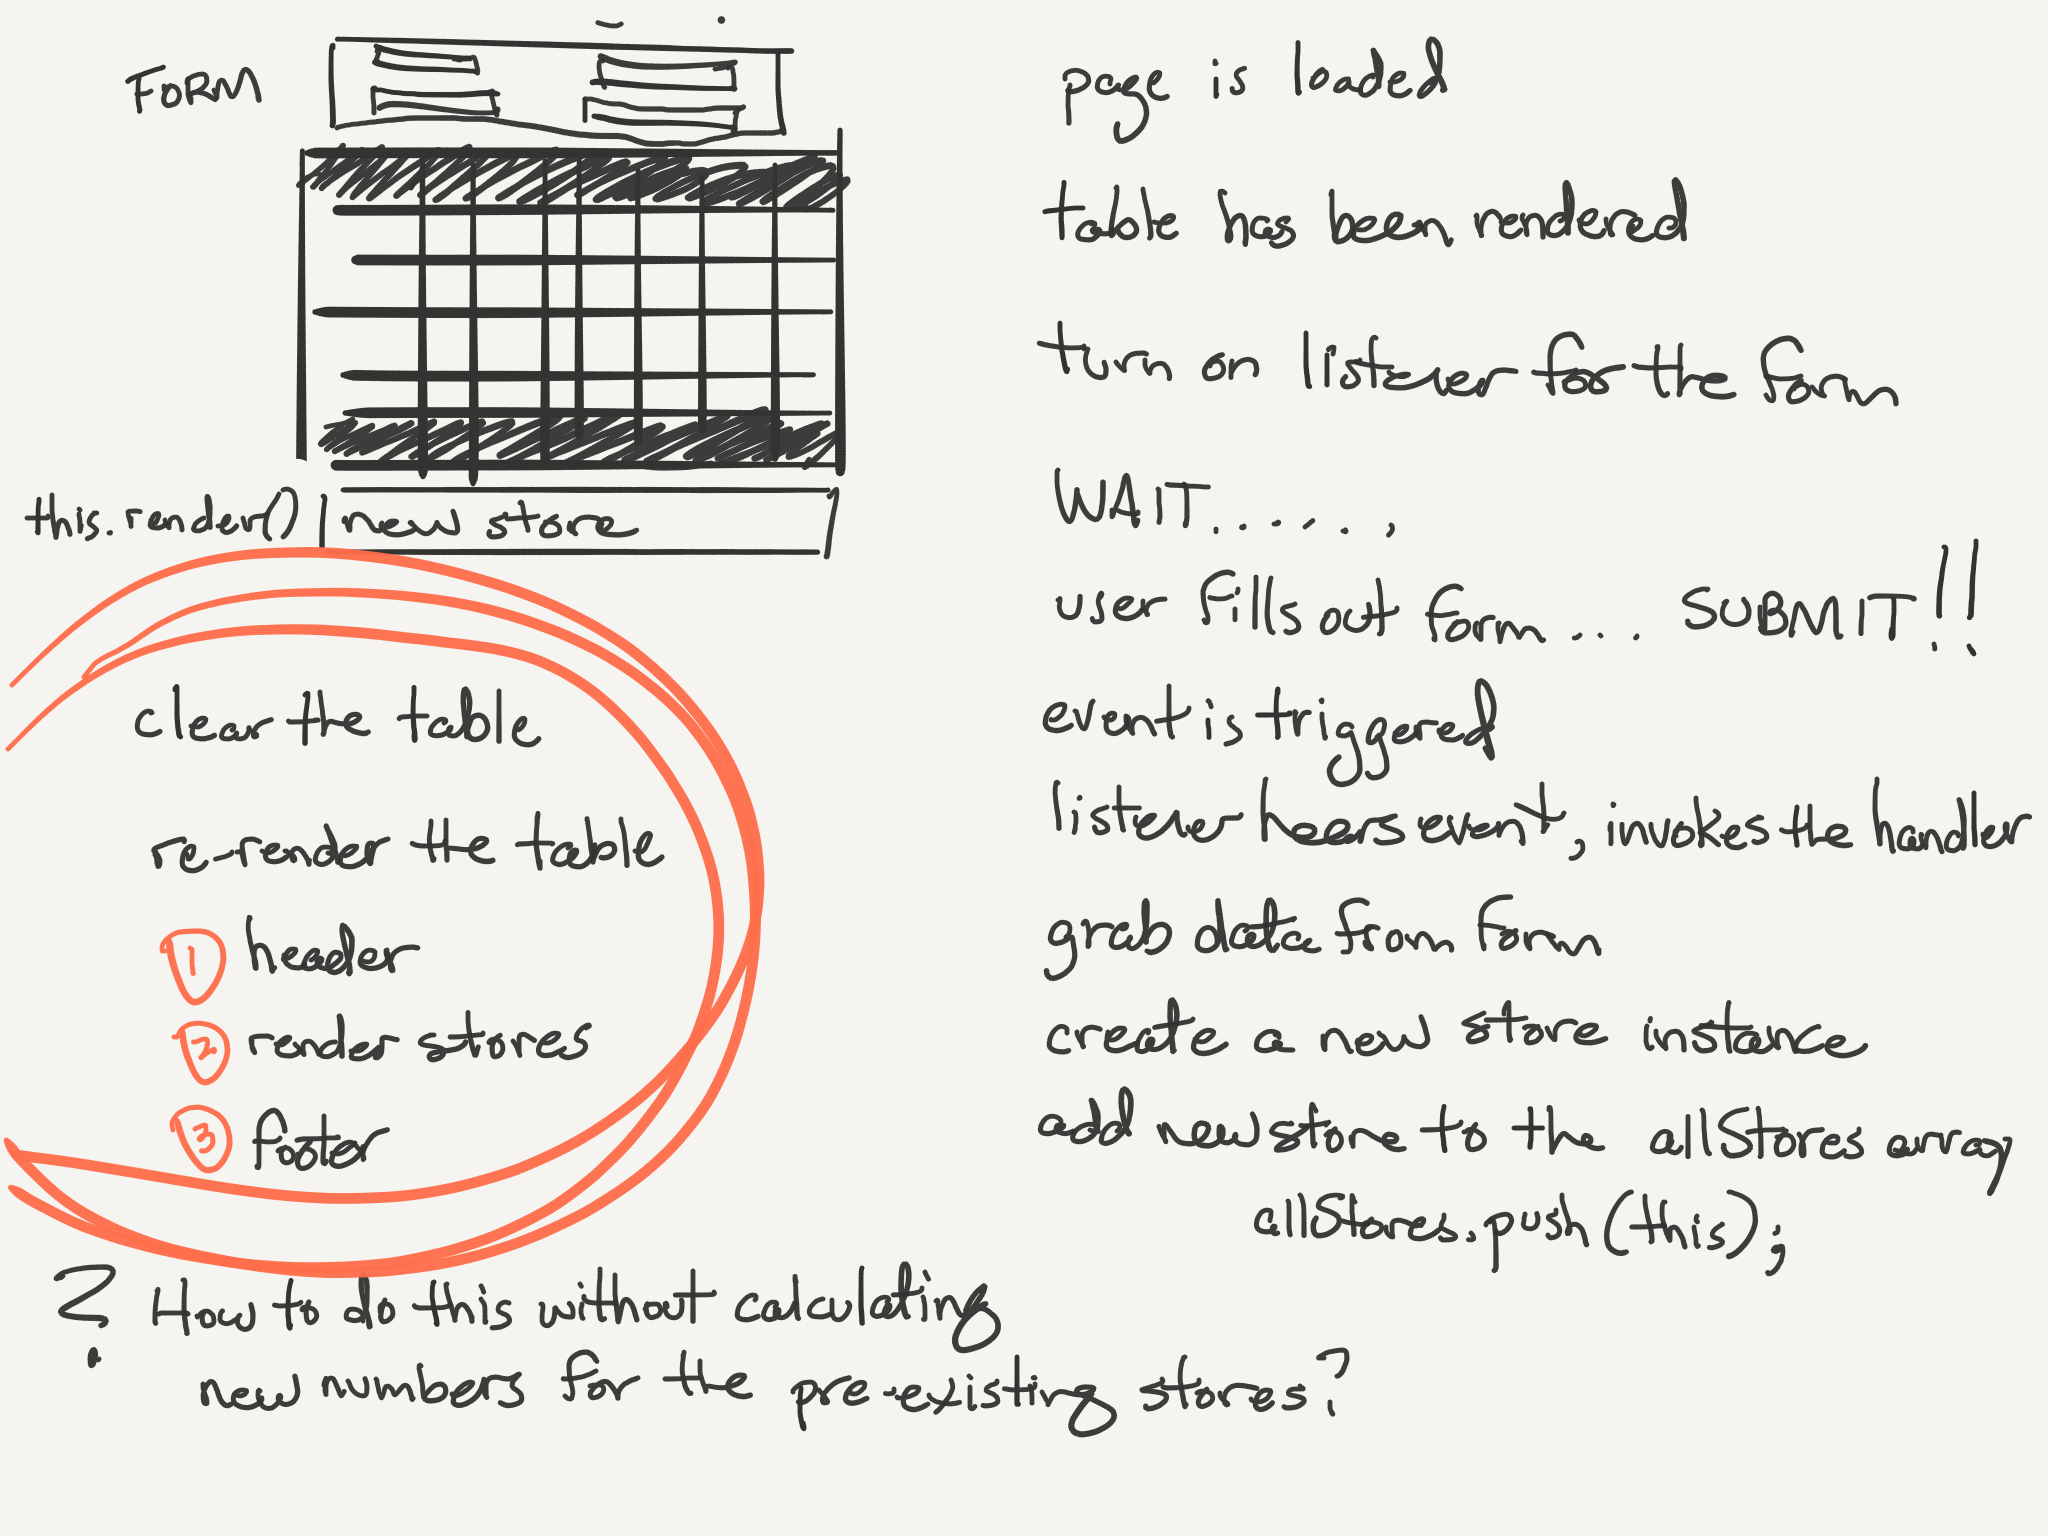 FORM
this.render()
new store
clear the table
re-render the table
1 header
2 render stores
3 footer
? How to do this without calculating
new numbers for the pre-existing stores?
page is loaded
table has been rendered
turn on listener for the form
WAIT......,
user fills out form... SUBMIT!!
event is triggered
listener heers event, invokes the handler
grab data from form
create a new store instance
add new store to the allStores array
allStores.push(this);